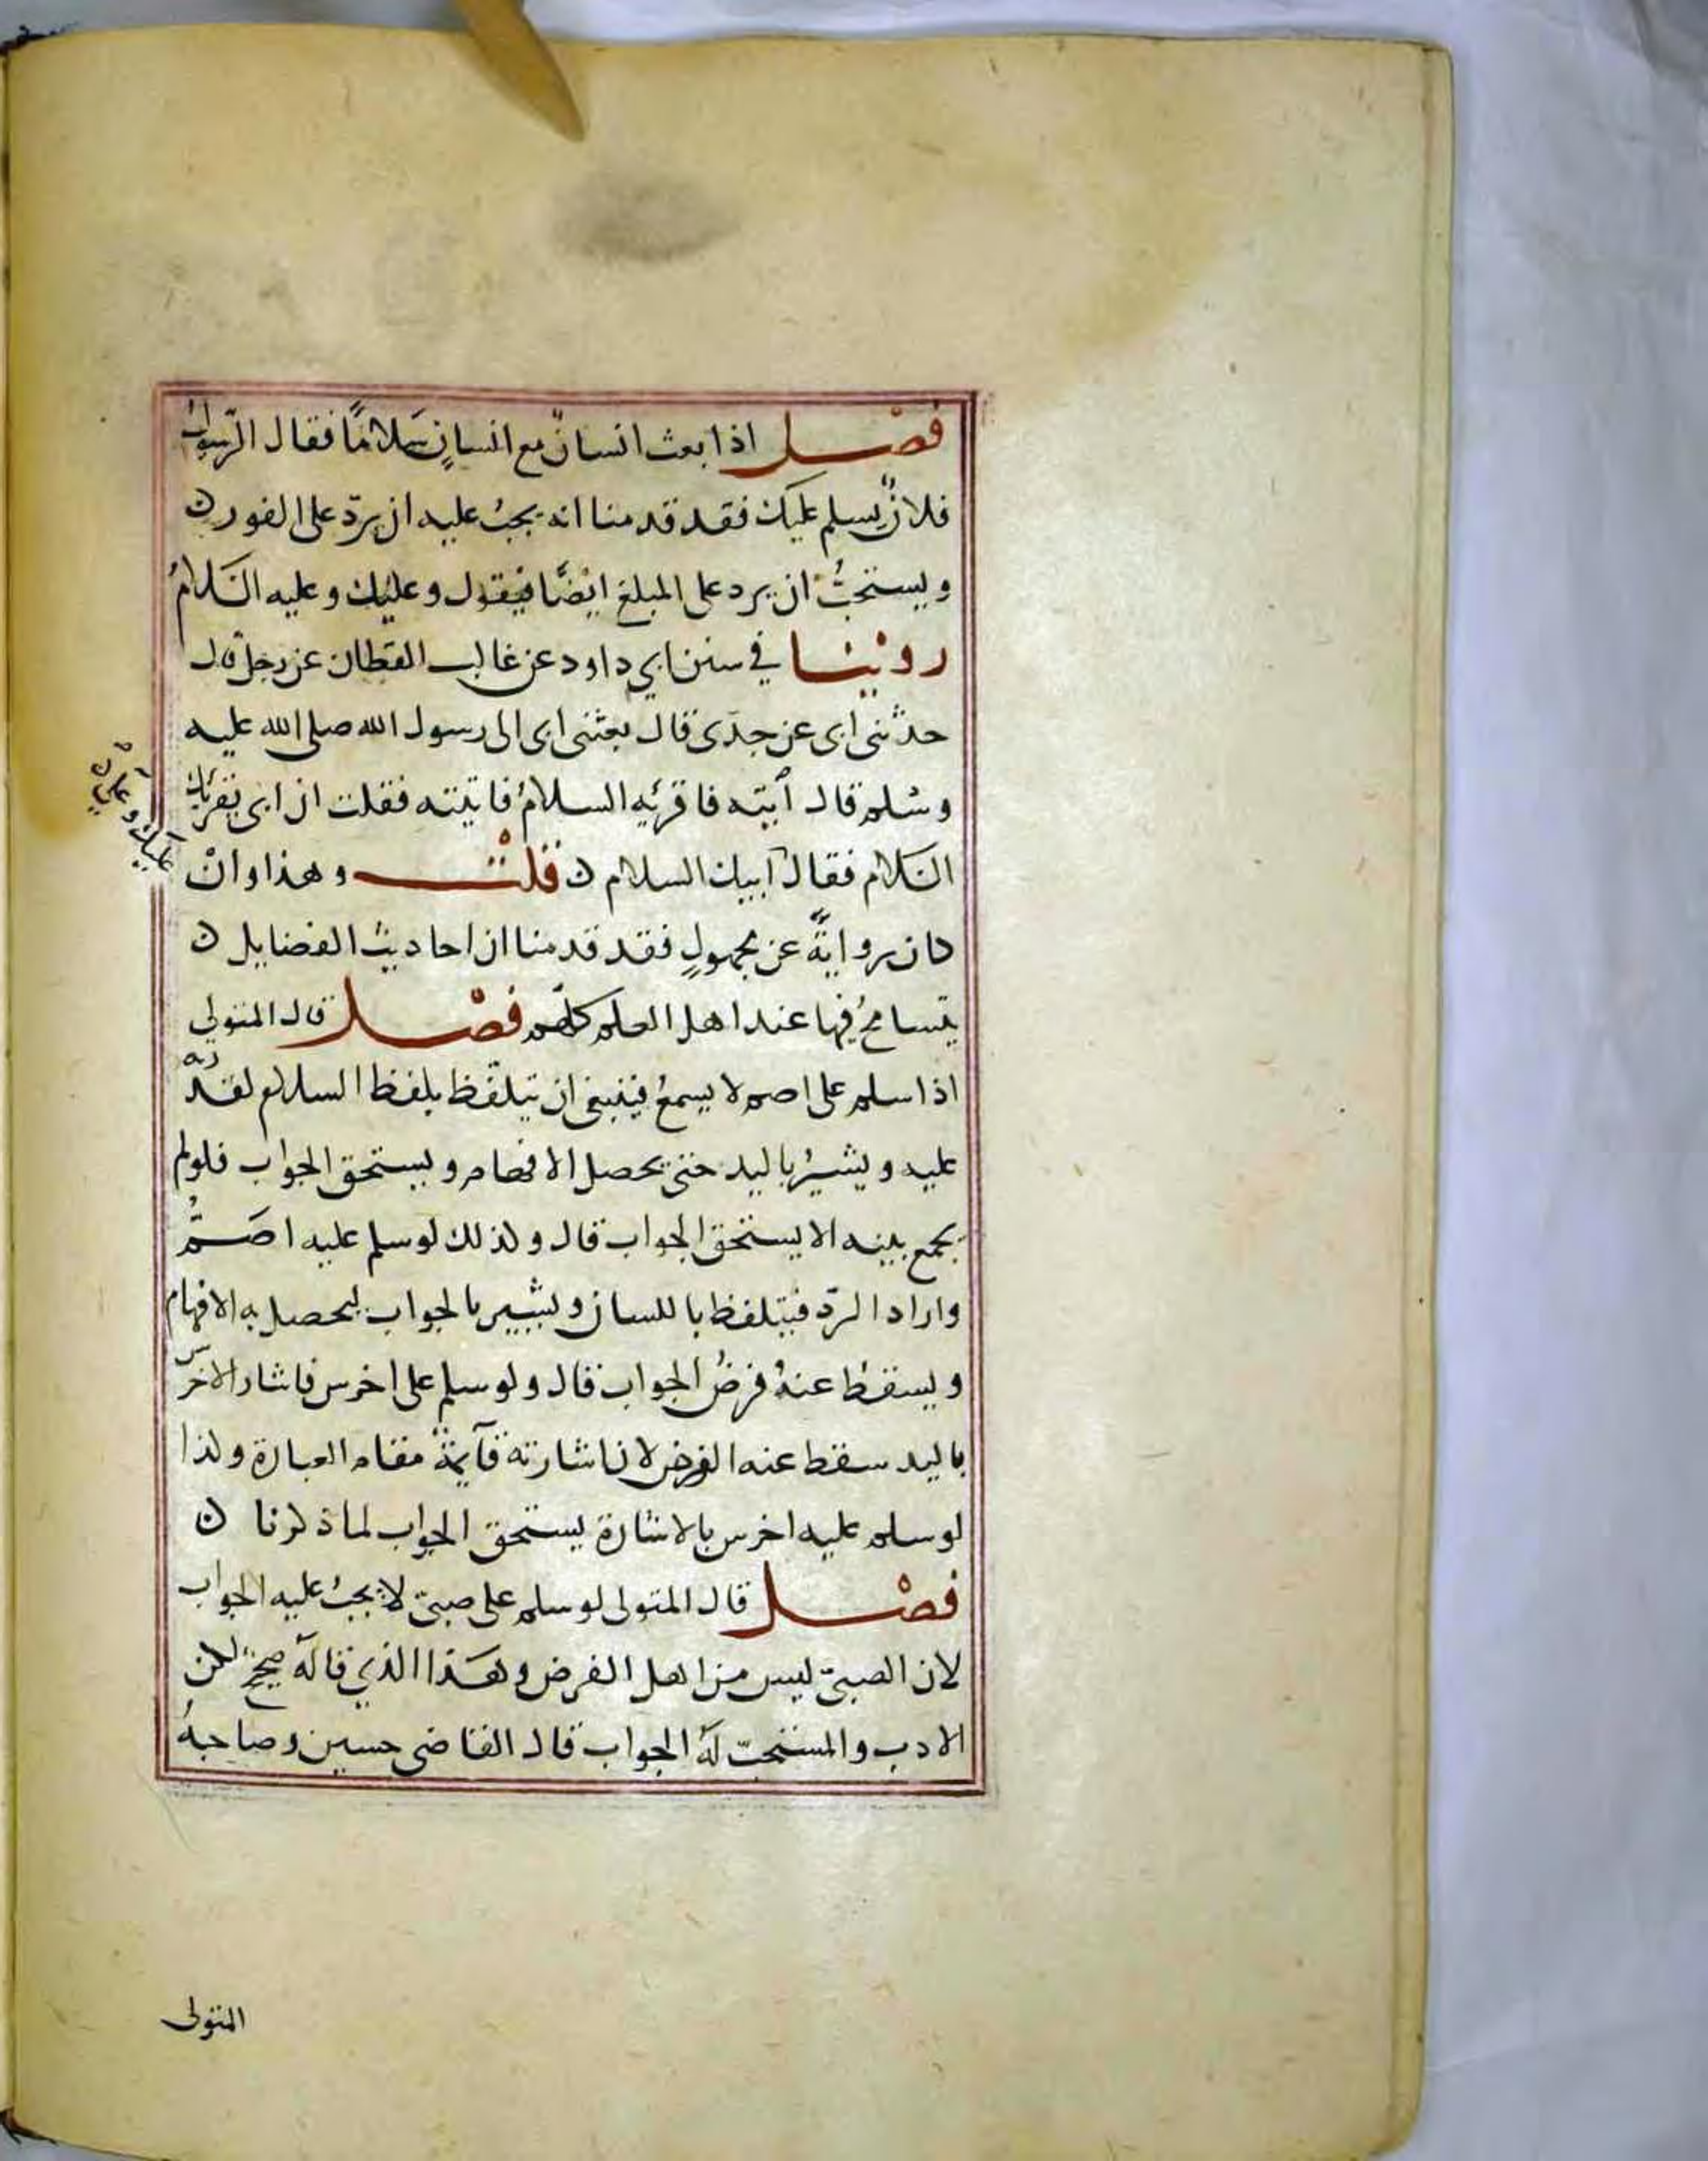 فصل اذا بعث انسانٌ مع انسانٍ سَلامًا فقال الرّسولُ
فلانٌ يسلم عليك فقد قدمنا انه يجبُ عليه ان يردّ على الفور ن
ويستحبُّ ان يرد على المبلغ ايضًا فيقول وعليك وعليه السَلامُ
روينا في سنن ابي داود عن غالب القطان عن رجل قال
حدثنى ابى عن جدى قال بعثنى ابى الى رسول الله صلى الله عليه
وسلم قال آيته فاقرئه السلامُ فاتيته فقلت ان ابى يقرئك
السَلام فقال أبيك السلام ن قلت وهذا وانْ
عليك وعلى
كان روايةً عن مجهولٍ فقد قدمنا ان احاديث الفضايل ن
يتسامحُ فيها عند اهل العلم كلهم فصل قال المتولى
اذا سلم على اصم لا يسمعُ فينبغى ان يتلفّظ بلفظ السلام لقدرته
عليه ويشيرُ باليد حتى يحصل الافهام ويستحق الجواب فلولم
يجمع بينه الا يستحق الجواب قال وكذلك لو سلم عليه اصَمُّ
واراد الردّ فيتلفظ باللسان ويشير بالجواب ليحصل به الافهام
ويسقط عنهُ فرضُ الجواب قال ولو سلم على اخرس فاشار الاخرس
باليد سقط عنه الفرض لان اشارته قآيمةٌ مقام العبارة وكذا
لو سلم عليه اخرس بالاشارة يستحق الجواب لما ذكرنا ن
فصل قال المتولى لو سلم على صبىّ لا يجبُ عليه الجواب
لان الصبىّ ليس من اهل الفرض وهَذا الذي قاله صحيح لكن
الادب والمستحبّ لَهُ الجواب قال القاضى حسين وصاحبهُ
المتولى